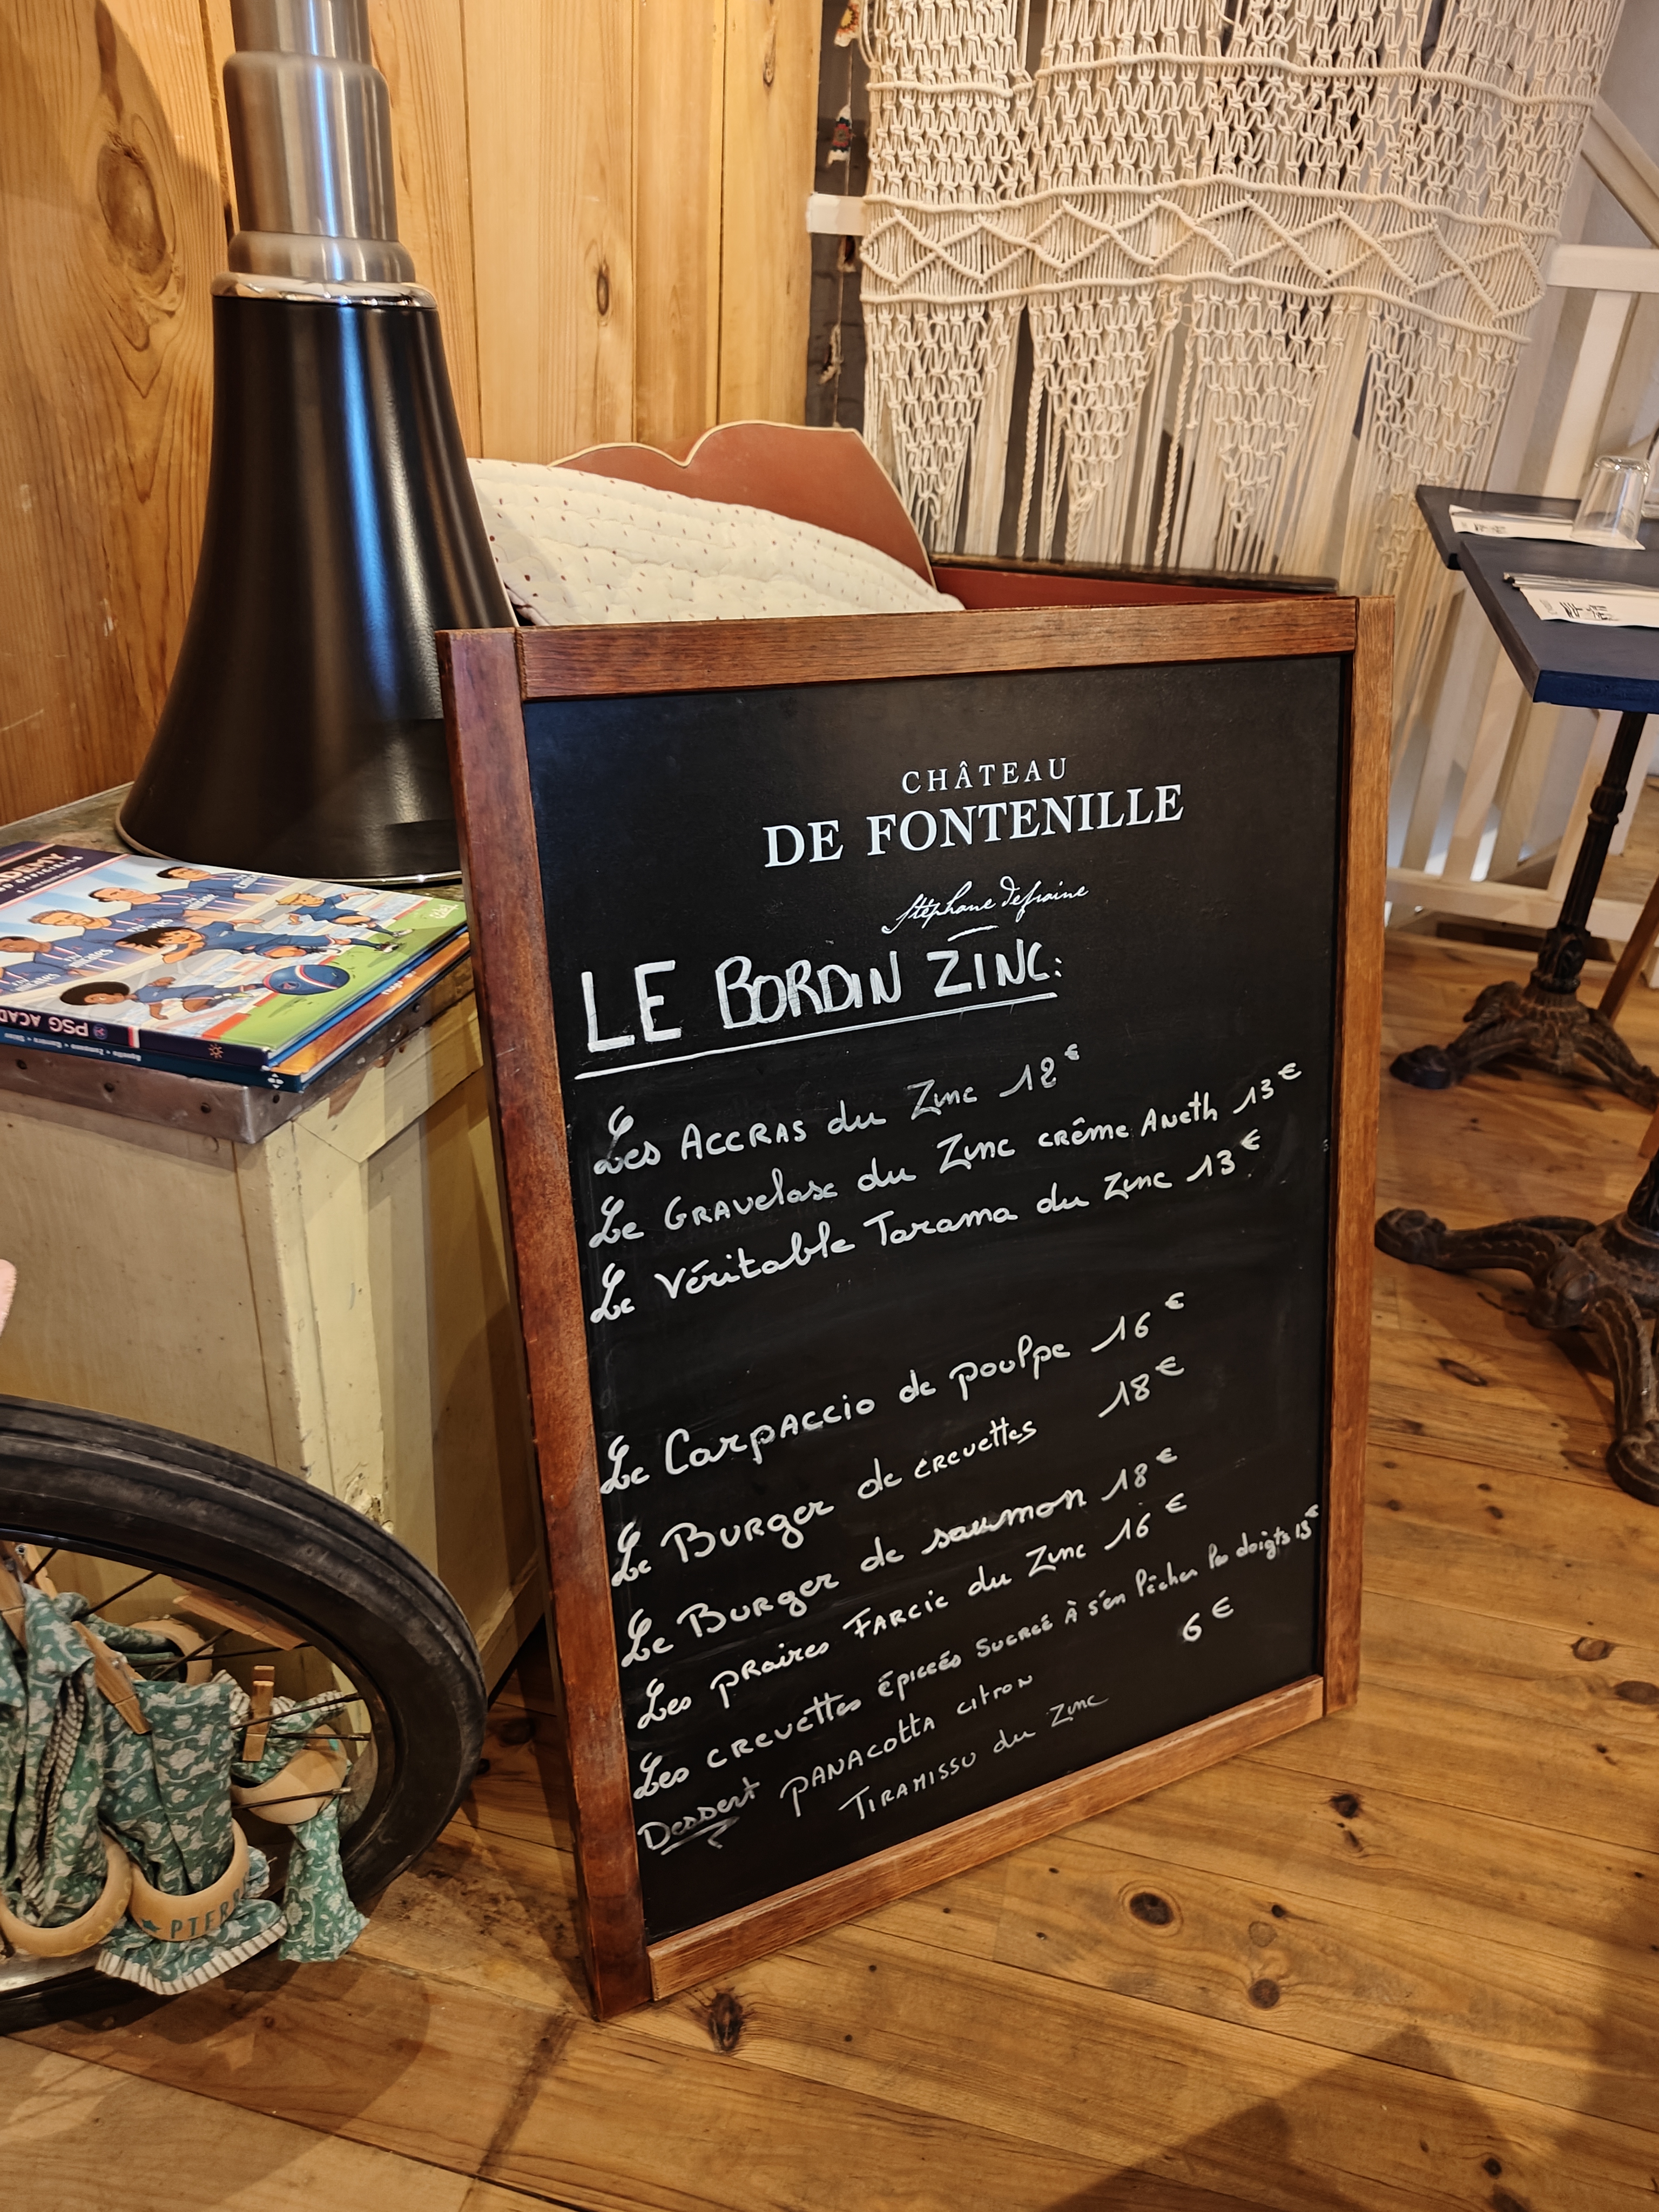 CHÂTEAU
DE FONTENILLE
Stéphane Defraine
LE BORDIN ZINC:
Les ACCRAS du Zinc 12€
Le GRAVelaxe du Zinc CRÊME ANeth 13€
Le Véritable Tarama du Zinc 13€
Le CarpACCIO de poulpe 16€
Le BURger de CREvettes 18€
Le BURger de saumon 18€
Les pRaires FARCIE du Zinc 16€
Les CREvettes ÉpICCÉS SUCRCÉ À s'en lècher les doigts 13€
Dessert PANACOTTA CITRON 6€
TIRAMISSU du Zinc
PSG ACAD
PTER